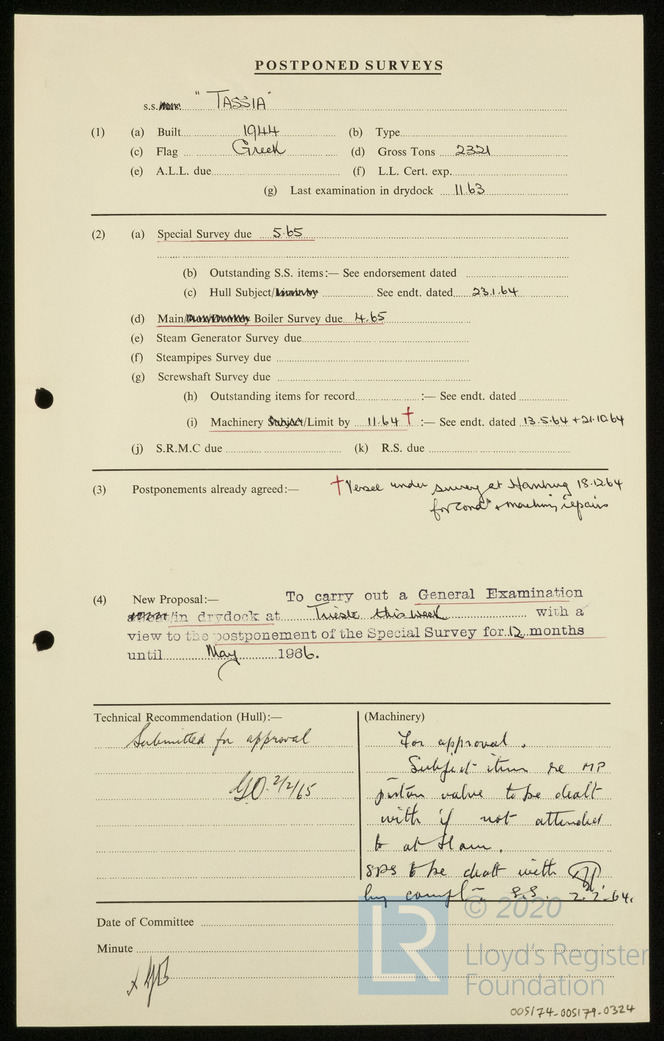 POSTPONED SURVEYS
s.s. "TASSIA"
(1) (a) Built 1944 (b) Type
(c) Flag Greek (d) Gross Tons 2321
(e) A.L.L. due (f) L.L. Cert. exp.
(g) Last examination in drydock 11.63
(2) (a) Special Survey due 5.65
(b) Outstanding S.S. items:— See endorsement dated
(c) Hull Subject/ See endt. dated 23.1.64
(d) Main/ Boiler Survey due 4.65
(e) Steam Generator Survey due
(f) Steampipes Survey due
(g) Screwshaft Survey due
(h) Outstanding items for record :— See endt. dated
(i) Machinery Subject/Limit by 11.64 † :— See endt. dated 13.5.64 + 21.10.64
(j) S.R.M.C due (k) R.S. due
(3) Postponements already agreed:— † Vessel under survey at Hamburg 18.12.64
for cond^n + machinery repairs
(4) New Proposal:— To carry out a General Examination
/in drydock at Trieste this week with a
view to the postponement of the Special Survey for 12 months
until May 1966.
Technical Recommendation (Hull):— (Machinery)
Submitted for approval
2/2/65
For approval.
Subject item re MP
piston valve to be dealt
with if not attended
to at Ham.
SPS to be dealt with
by compl^n S.S. 2.2.64.
Date of Committee
Minute
© 2020
LR
Lloyd's Register
Foundation
005174-005179-0324